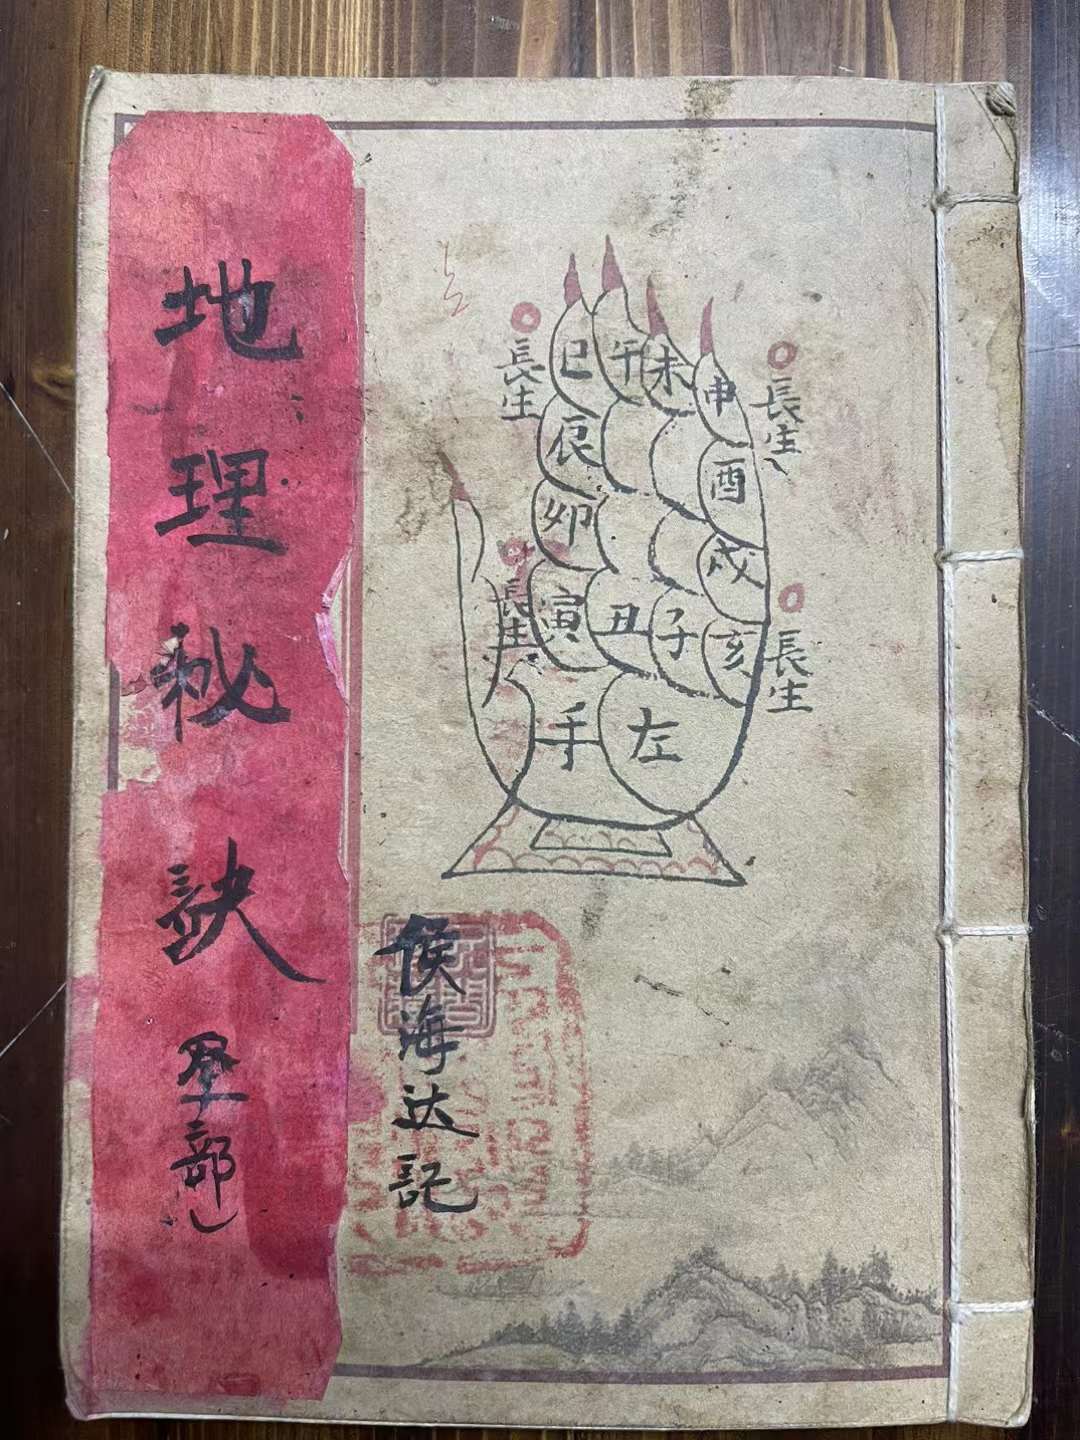 地理秘訣 部
長生
長生
長生
長生
巳 午 未 申
辰 酉
卯 戌
寅 丑 子 亥
左手
侯海达記